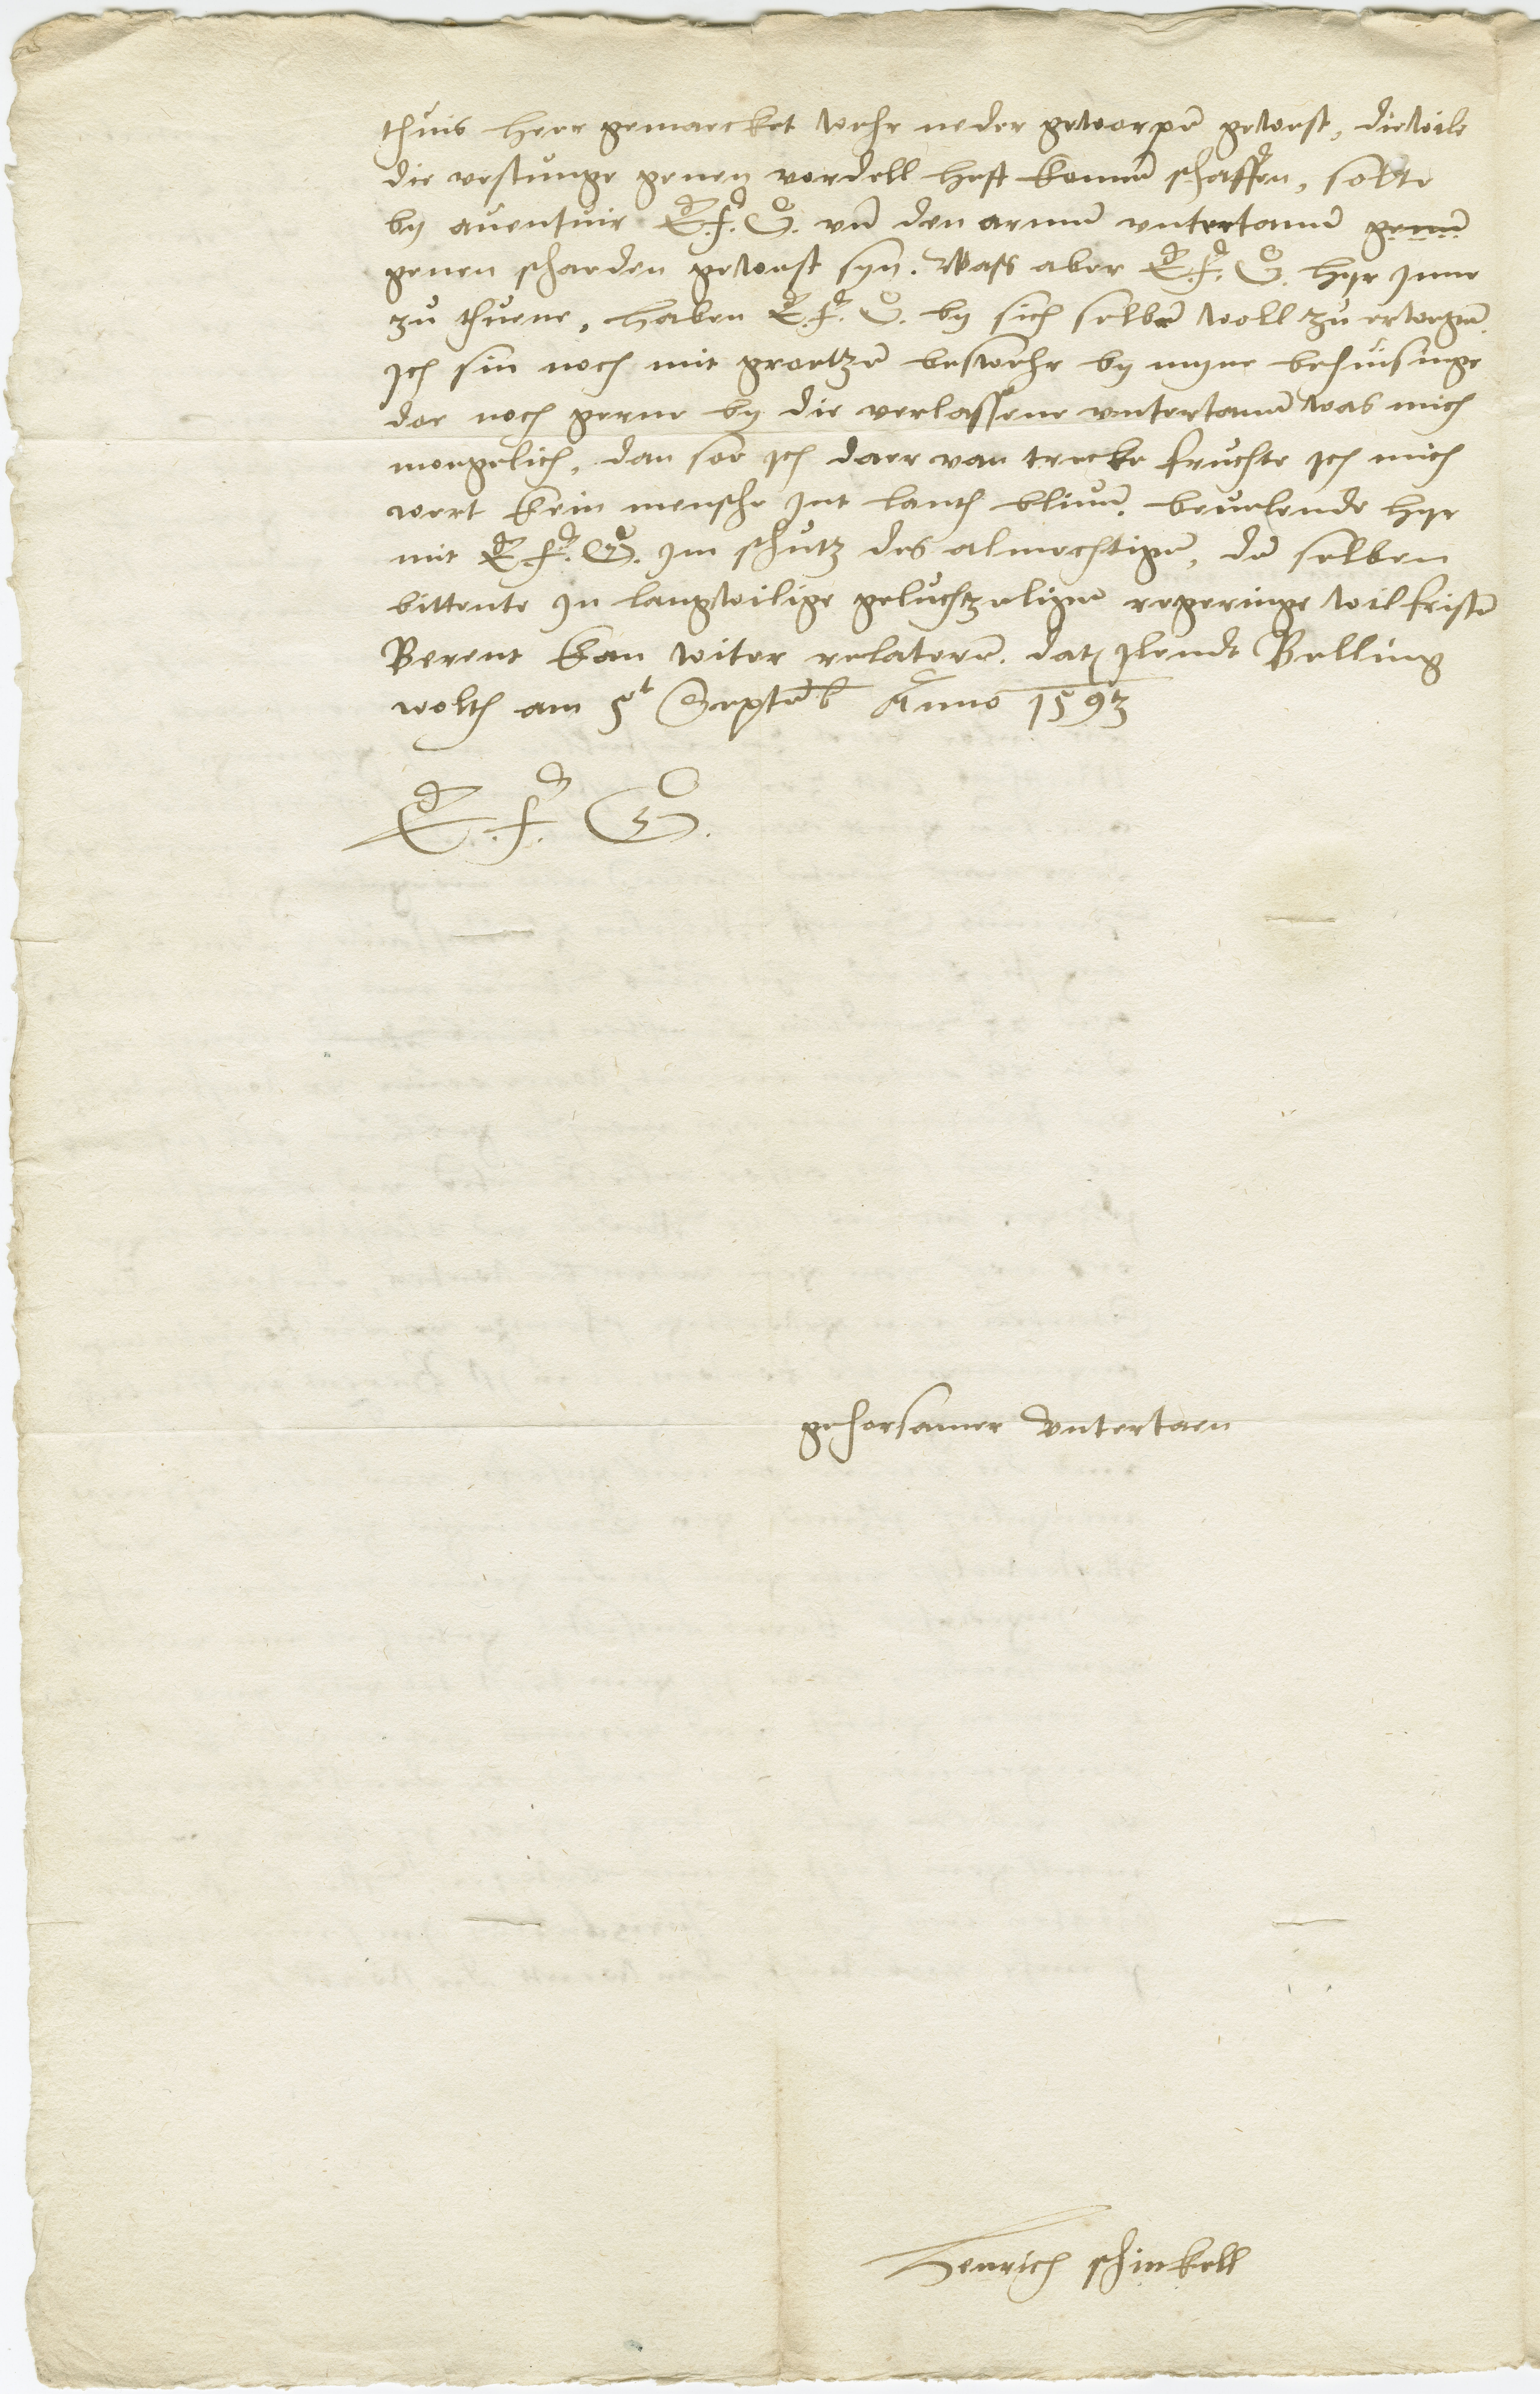 thuis heer gemarcket wehr neder geworpē gewest, diewile
die vestunge genen vordell heft konnē schaffen, solte
by auentuir E. f. G. vñ den armē vntertanē genē
genen schaeden gewest syn. Wass aber E. f. G. hyr Inne
zu thuene, haben E. f. G. by sich selbē woll zu erwegē.
Ich sin noch mit groetzē beswehr by myne behuisinge
dar noch gerne by die verlassene vntertanē was mich
moegelich, dan soe Ich daer van trecke fruchte Ich mich
wert kein mensche Int lanth bliuē. beuelende hyr
mit E. f. G. Im schutz des almechtigē, dē selben
bittente In langwilige geluchtzeligē regeringe wil fristē
Berent kan witer relaterē. datū Ilendt Belling
wolth am 5t Septēb Anno 1593
E. f. G.
gehorsamer Vntertaen
Henrich schinkell